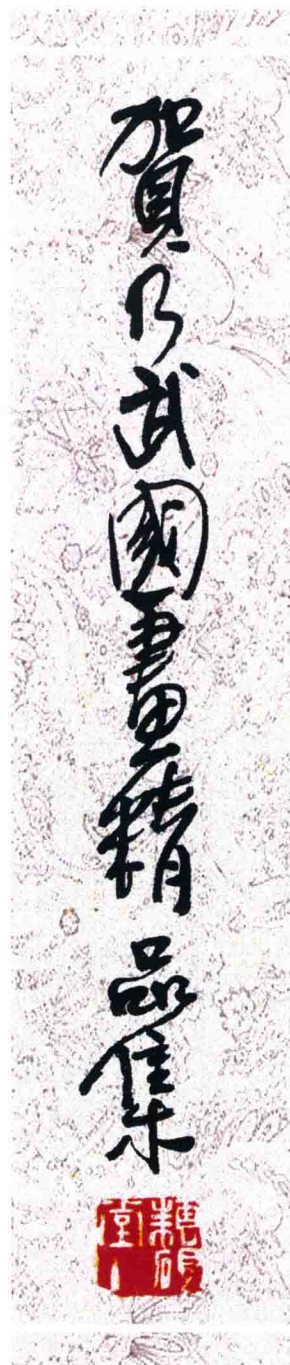 賀乃武國畫精品集